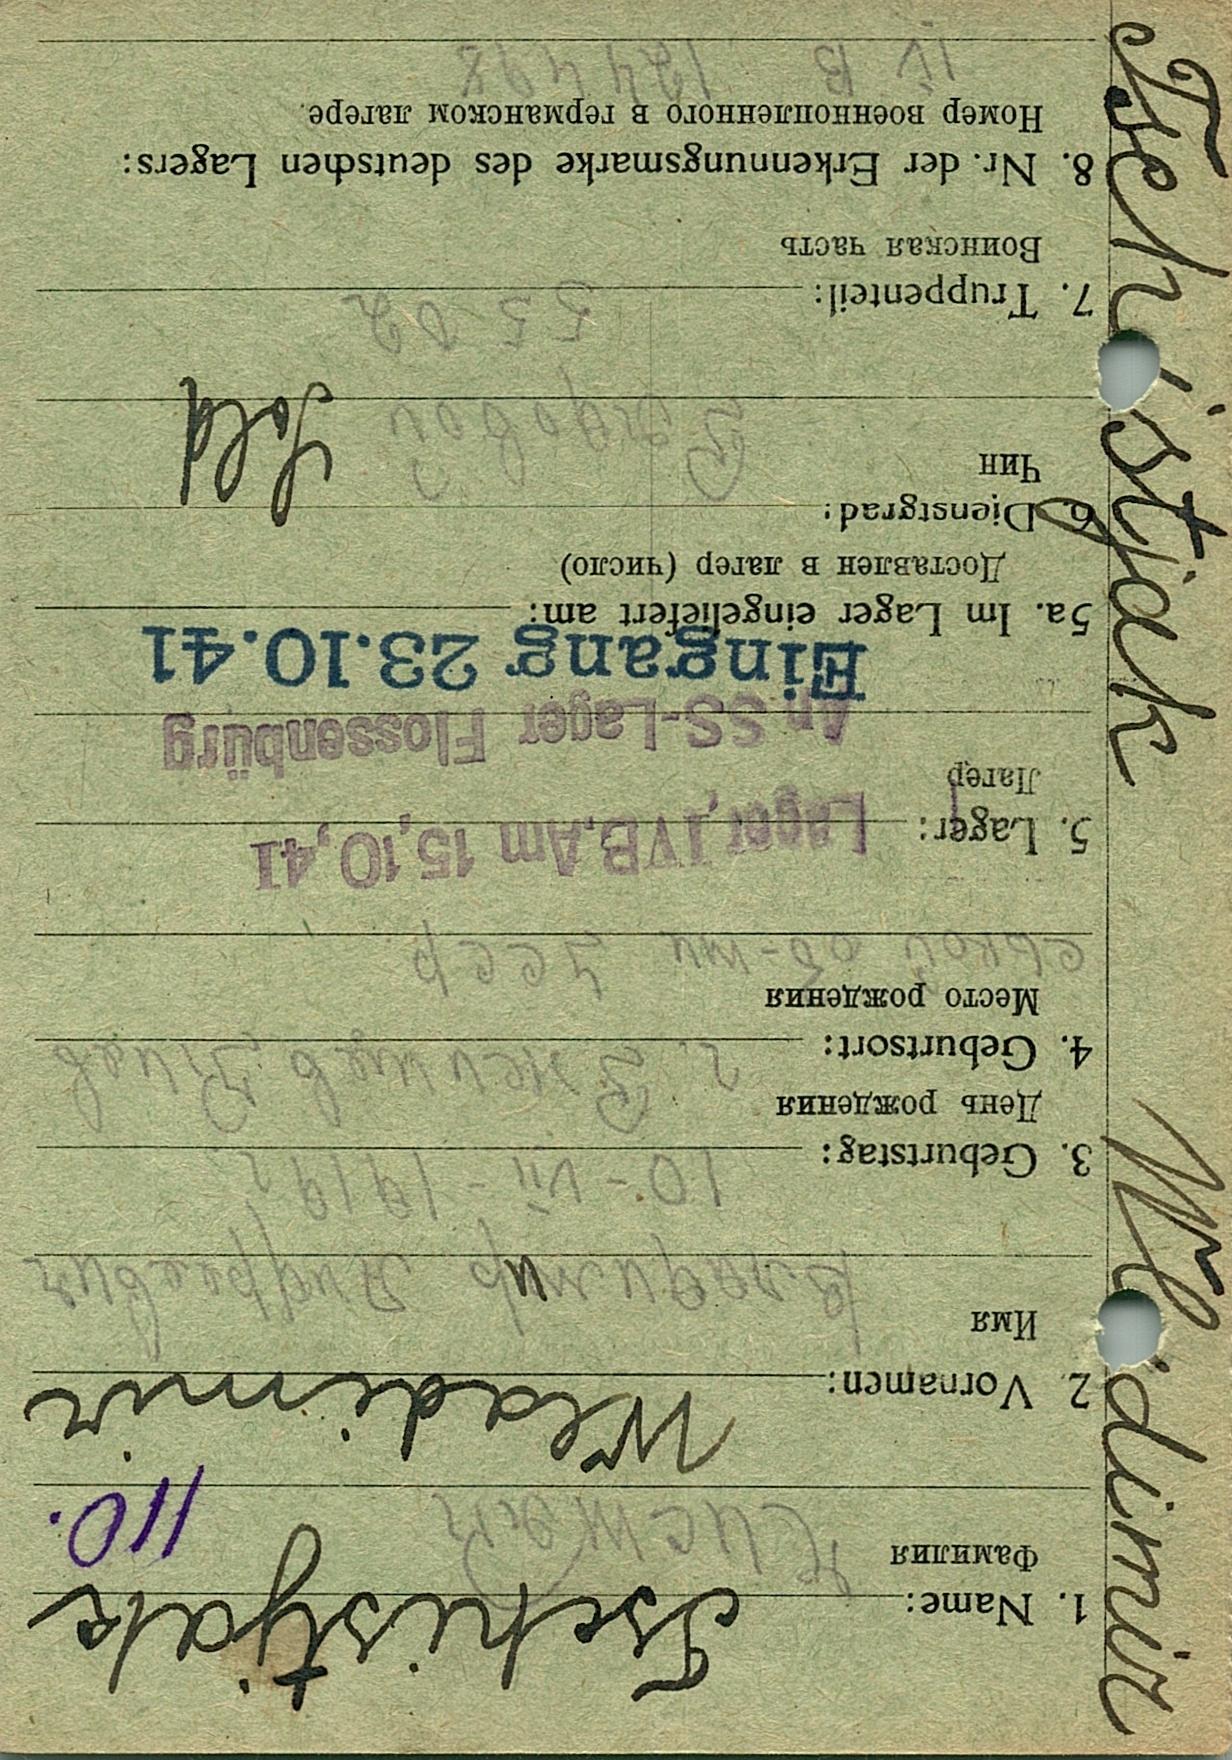 Tschistjak
1. Name:
Фамилия Чистяк 110.
Wladimir
2. Vornamen:
Имя
Владимир Андреевич
3. Geburtstag: 10-VII-1919 г.
День рождения
4. Geburtsort: с. Киев
Место рождения
ской об-ти УССР
5. Lager: Lager, IVB. Am 15,10,41
Лагер
An SS-Lager Flossenbürg
Eingang 23.10.41
5a. Im Lager eingeliefert am:
Доставлен в лагер (число)
6. Dienstgrad: Sold
Чин
Рядовой
7. Truppenteil:
Воинская часть
8. Nr. der Erkennungsmarke des deutschen Lagers:
Номер военнопленного в германском лагере.
IV B 124498
Tschistjak Wladimir